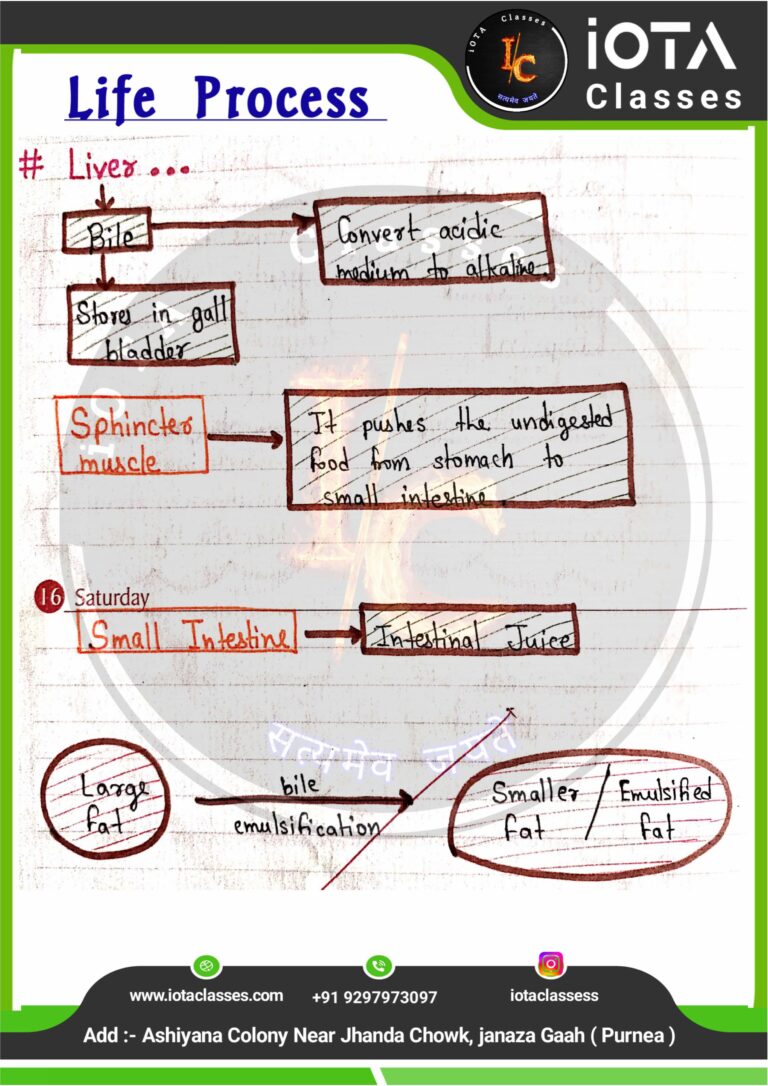 iOTA Classes
I/C
सत्यमेव जयते
iOTA
Classes
Life Process
# Liver...
Bile
Convert acidic
medium to alkaline.
Stores in gall
bladder
Sphincter
muscle
It pushes the undigested
food from stomach to
small intestine.
16 Saturday
Small Intestine
Intestinal Juice
iOTA Classes
I/C
सत्यमेव जयते
Large
fat
bile
emulsification
Smaller / Emulsified
fat fat
www.iotaclasses.com
+91 9297973097
iotaclassess
Add :- Ashiyana Colony Near Jhanda Chowk, janaza Gaah ( Purnea )